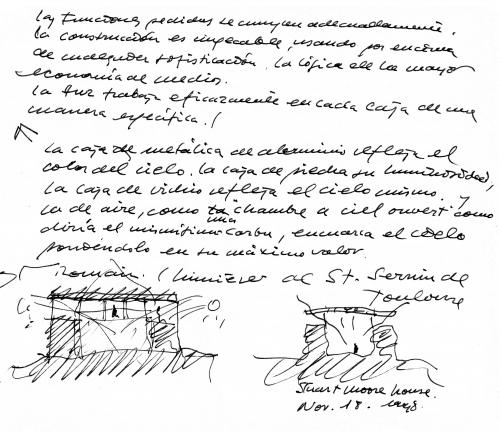 Las funciones pedidas se cumplen adecuadamente.
La construcción es impecable, usando por encima
de cualquier sofisticación. La lógica de la mayor
economía de medios.
La luz trabaja eficazmente en cada caja de una
manera específica. /
La caja de metálica de aluminio refleja el
color del cielo. La caja de piedra su luminosidad,
La caja de vidrio refleja el cielo mismo. Y
la de aire, como una "chambre a ciel ouvert" como
diría el mismísimo Corbu, enmarca el cielo
poniéndolo en su máximo valor.
Román. (lumière al St. Sernin de
Toulouse
Stuart Moore house.
Nov. 18.